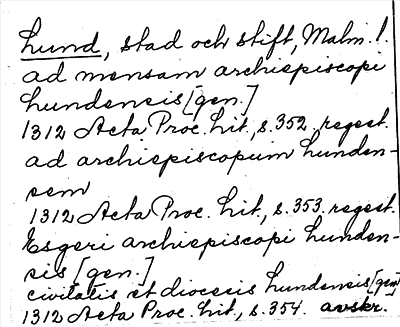 Lund, stad och stift, Malm. l.
ad mensam archiepiscopi
Lundensis [gen.]
1312 Acta Proc. Lit., s. 352 regest.
ad archiepiscopum Lunden-
sem
1312 Acta Proc. Lit., s. 353 regest.
Esgeri archiepiscopi Lunden-
sis [gen.]
civitatis et diocesis Lundensis [gen]
1312 Acta Proc. Lit., s. 354. avskr.